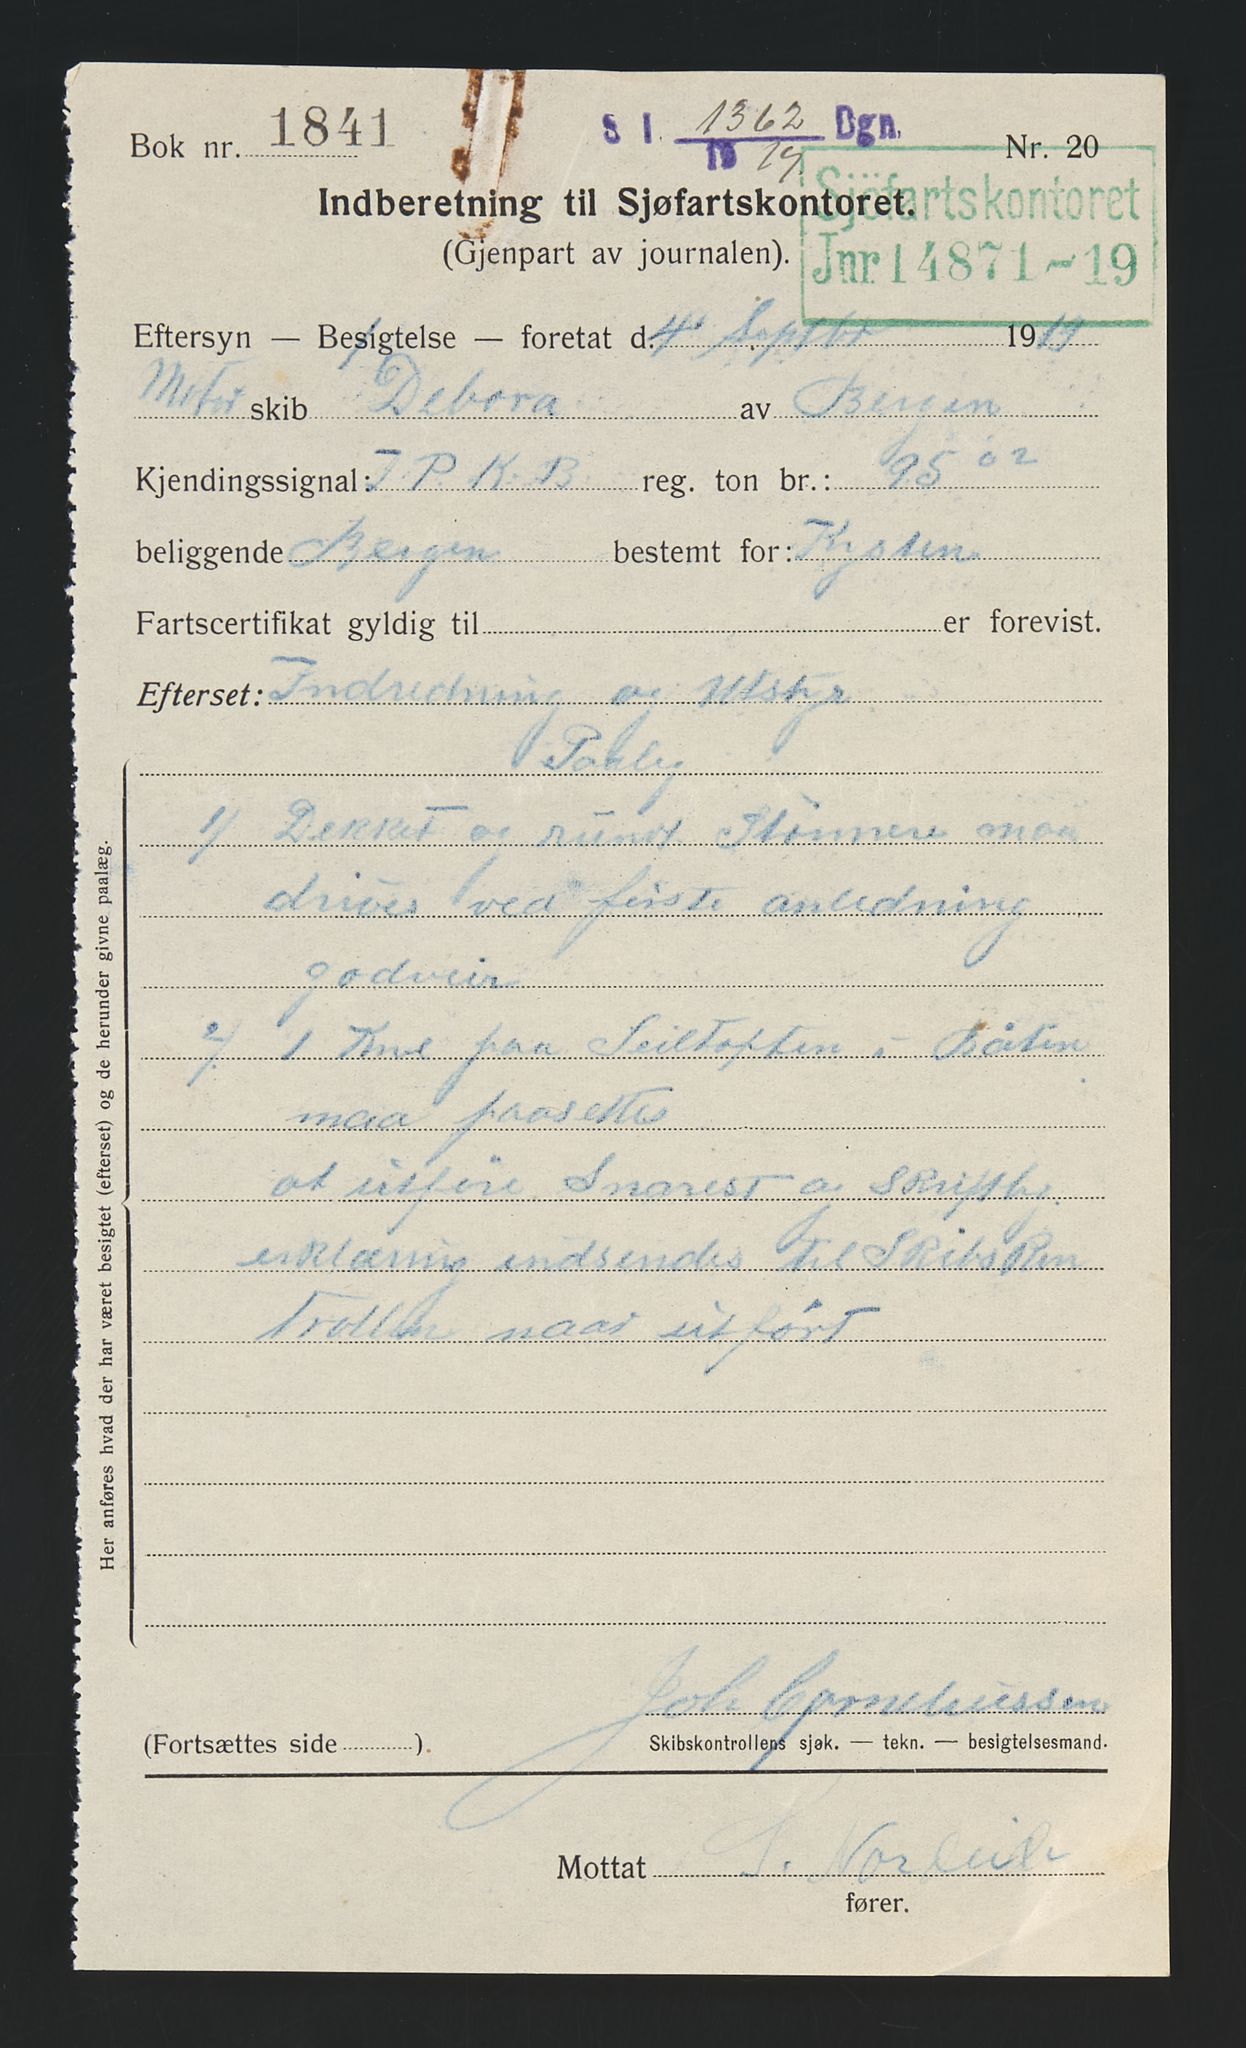 Bok nr. 1841
S I. 1362 Dgn.
19 19
Nr. 20
Sjöfartskontoret
Jnr. 14871-19
Indberetning til Sjøfartskontoret.
(Gjenpart av journalen).
Eftersyn — Besigtelse — foretat d. 4 Septbr 1919
Motor skib Debora av Bergen
Kjendingssignal: J. P. K. B. reg. ton br.: 95 02
beliggende Bergen bestemt for: Kysten
Fartscertifikat gyldig til er forevist.
Efterset: Indredning og Utstyr
Paaleg
1/ Dekket og rundt Stönnere maa
drives ved förste anledning
godveir
2/ 1 Kne paa Seiltoften i Båten
maa paasettes
at utföre Snarest og Skriftlig
erklæring indsendes til Skibskon
trollen naar utfört
Her anføres hvad der har været besigtet (efterset) og de herunder givne paalæg.
Joh Corneliussen
(Fortsættes side ).
Skibskontrollens sjøk. — tekn. — besigtelsesmand.
Mottat S.
fører.